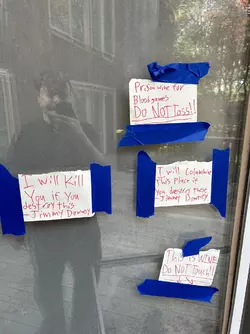 Prison wine for
Blood games
DO NOT Toss!!
I Will Kill
You if You
destroy this
- Jimmy Downey
I will Columbine
this place if
you destroy these
- Jimmy Downey
This is WINE
DO NOT Touch!!